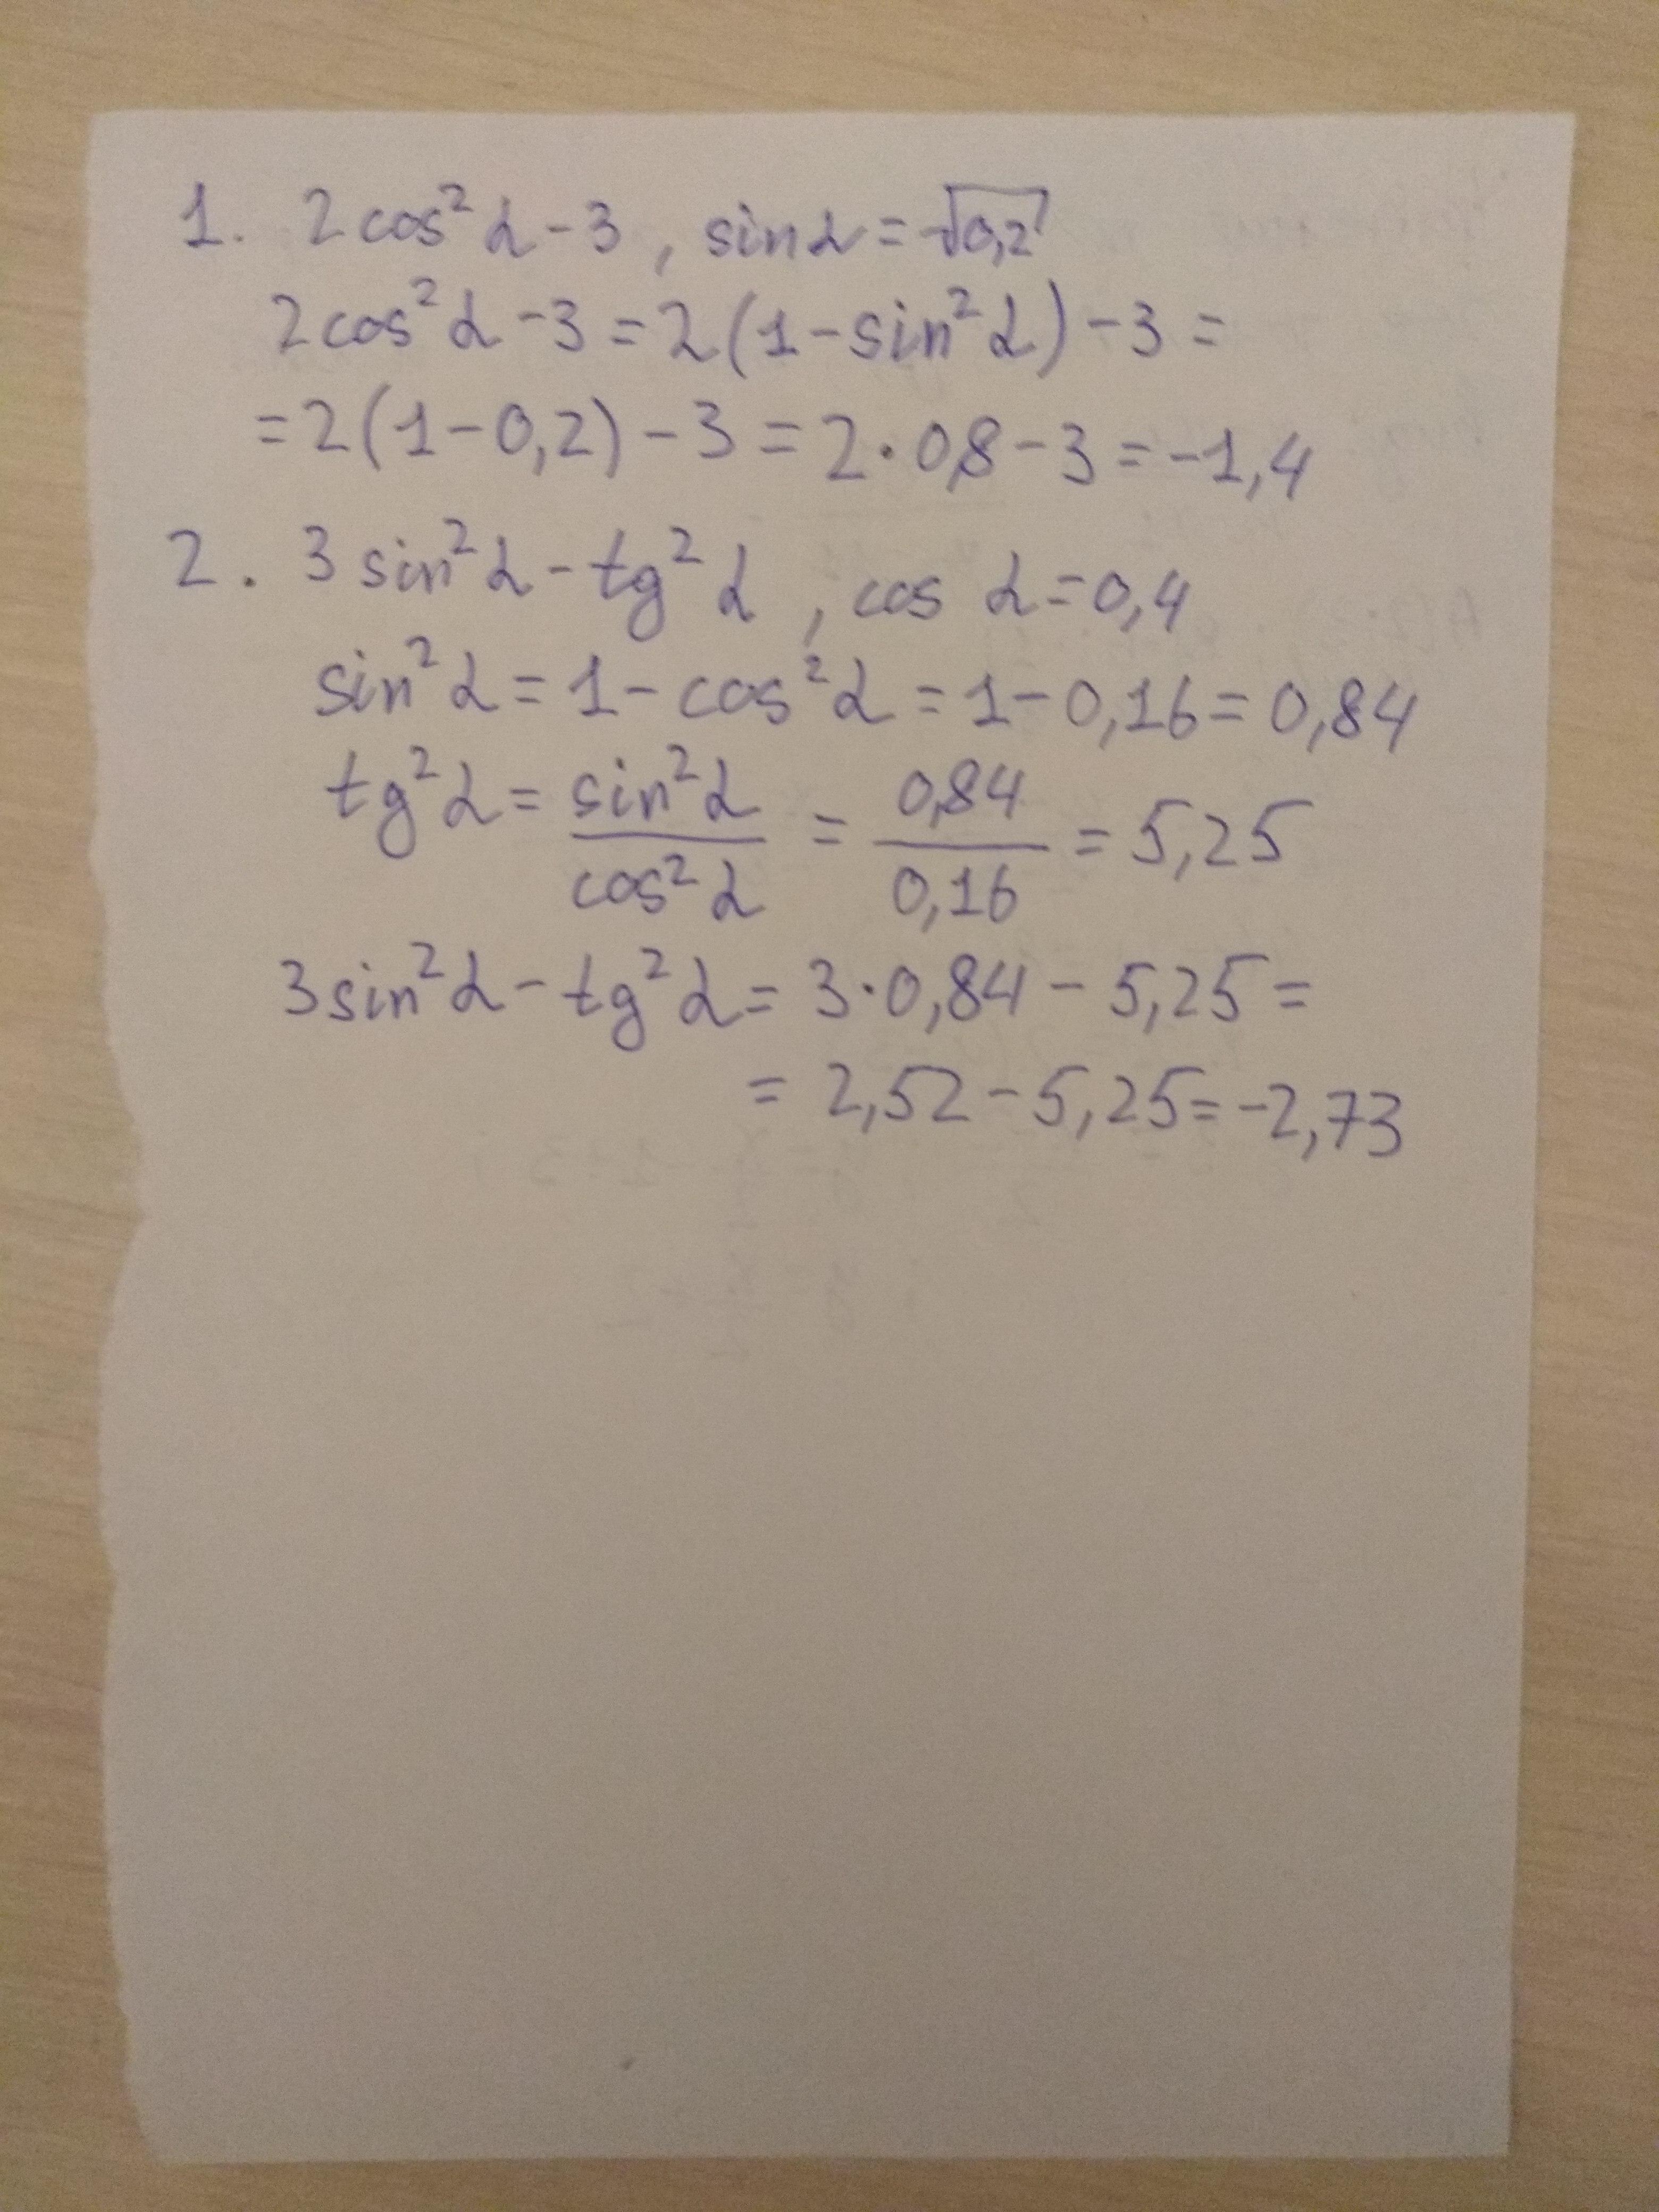 1. 2cos²α-3, sinα=√0,2
2cos²α-3=2(1-sin²α)-3=
=2(1-0,2)-3=2·0,8-3=-1,4
2. 3sin²α-tg²α, cos α=0,4
sin²α=1-cos²α=1-0,16=0,84
tg²α=sin²α/cos²α=0,84/0,16=5,25
3sin²α-tg²α=3·0,84-5,25=
=2,52-5,25=-2,73